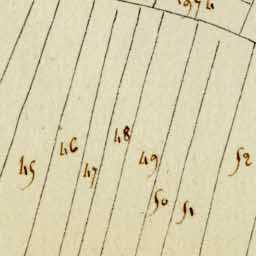 45
46
47
48
49
50
51
52